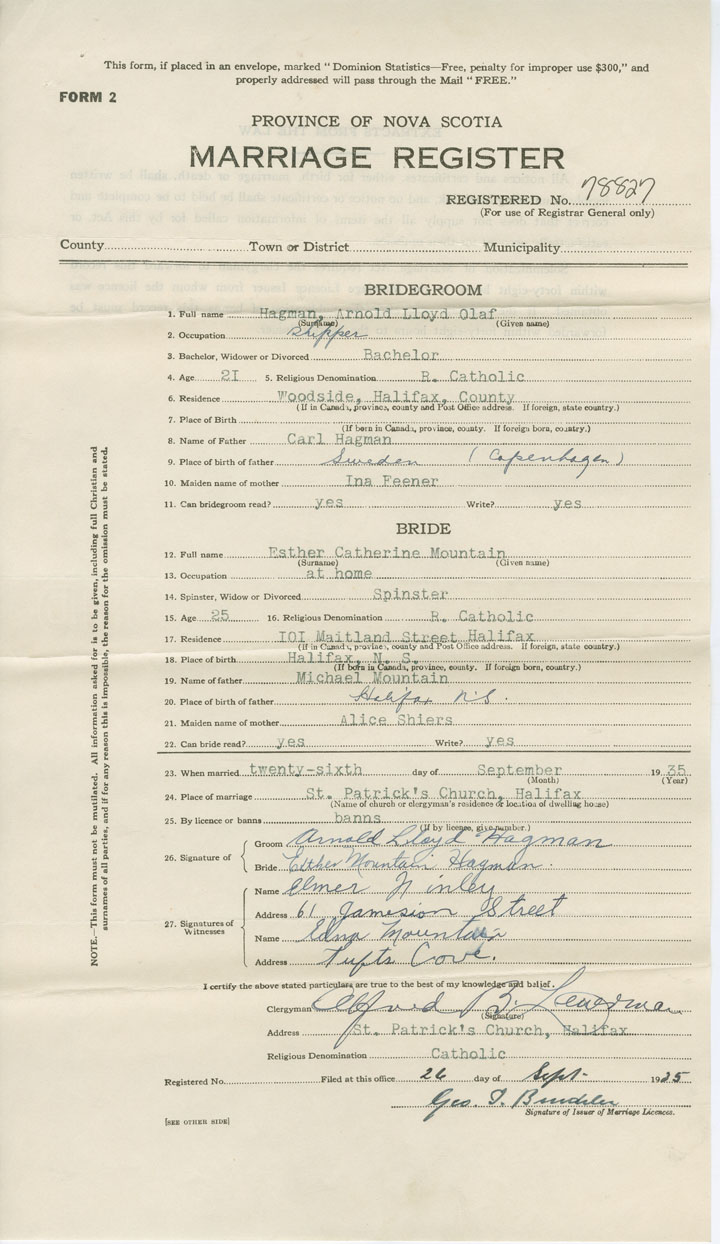 This form, if placed in an envelope, marked "Dominion Statistics—Free, penalty for improper use $300," and
properly addressed will pass through the Mail "FREE."
FORM 2
PROVINCE OF NOVA SCOTIA
MARRIAGE REGISTER
REGISTERED No. 78827
(For use of Registrar General only)
County Town or District Municipality
BRIDEGROOM
1. Full name Hagman, Arnold Lloyd Olaf
(Surname) (Given name)
2. Occupation
3. Bachelor, Widower or Divorced Bachelor
4. Age 2I 5. Religious Denomination R. Catholic
6. Residence Woodside, Halifax, County
(If in Canada, province, county and Post Office address. If foreign, state country.)
7. Place of Birth
(If born in Canada, province, county. If foreign born, country.)
8. Name of Father Carl Hagman
9. Place of birth of father Sweden (Copenhagen)
10. Maiden name of mother Ina Feener
11. Can bridegroom read? yes Write? yes
BRIDE
12. Full name Esther Catherine Mountain
(Surname) (Given name)
13. Occupation at home
14. Spinster, Widow or Divorced Spinster
15. Age 25 16. Religious Denomination R. Catholic
17. Residence IOI Maitland Street Halifax
(If in Canada, province, county and Post Office address. If foreign, state country.)
18. Place of birth Halifax, N. S.
(If born in Canada, province, county. If foreign born, country.)
19. Name of father Michael Mountain
20. Place of birth of father Halifax N.S.
21. Maiden name of mother Alice Shiers
22. Can bride read? yes Write? yes
23. When married twenty-sixth day of September 19 35
(Month) (Year)
24. Place of marriage St. Patrick's Church, Halifax
(Name of church or clergyman's residence or location of dwelling house)
25. By licence or banns banns
(If by licence, give number.)
26. Signature of
Groom Arnold Lloyd Hagman
Bride Esther Mountain Hagman.
27. Signatures of Witnesses
Name Elmer
Address 61 Jamesion Street
Name Edna Mountain
Address Tufts Cove.
I certify the above stated particulars are true to the best of my knowledge and belief.
Clergyman Alfred B.
(Signature)
Address St. Patrick's Church, Halifax
Religious Denomination Catholic
Registered No. Filed at this office 26 day of Sept. 1935
Geo.
Signature of Issuer of Marriage Licences.
[SEE OTHER SIDE]
NOTE.—This form must not be mutilated. All information asked for is to be given, including full Christian and
surnames of all parties, and if for any reason this is impossible, the reason for the omission must be stated.